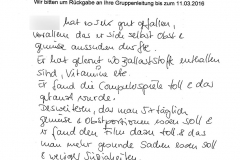 Wir bitten um Rückgabe an Ihre Gruppenleitung bis zum 11.03.2016
hat es dir gut gefallen,
vorallem das er sich selbst Obst &
Gemüse aussuchen durfte.
Er hat gelernt wo Ballaststoffe enthalten
sind, Vitamine etc.
Er fand die Computerspiele toll & das
getanzt wurde.
Desweiteren, das man 5x täglich
Gemüse & Obstportionen essen soll &
er fand den Film dazu toll & das
man mehr gesunde Sachen essen soll
& wenig Süßigkeiten.